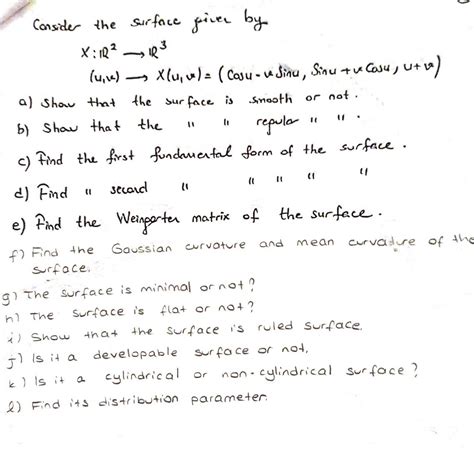 Consider the surface given by
X : ℝ² → ℝ³
(u,v) → X(u,v) = (Cosu - v Sinu, Sinu + v Cosu, u+v)
a) Show that the surface is smooth or not.
b) Show that the " " regular " " .
c) Find the first fundamental form of the surface.
d) Find " second " " " " "
e) Find the Weingarten matrix of the surface.
f) Find the Gaussian curvature and mean curvature of the
surface.
g) The surface is minimal or not?
h) The surface is flat or not?
i) Show that the surface is ruled surface.
j) Is it a developable surface or not.
k) Is it a cylindrical or non-cylindrical surface?
l) Find its distribution parameter.